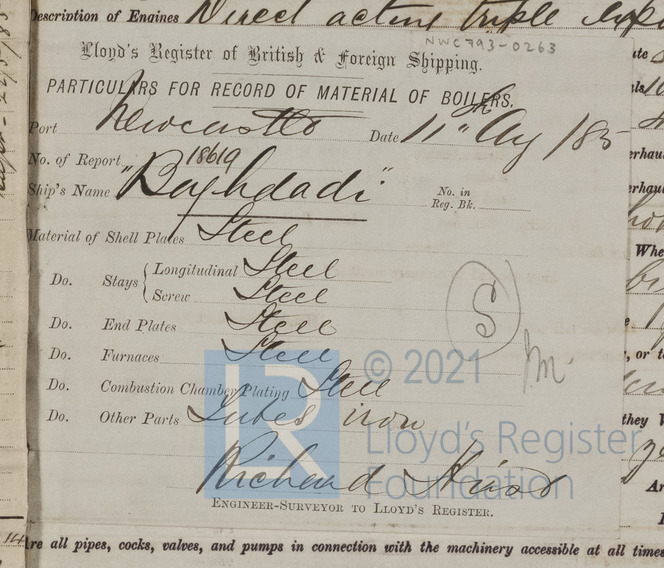 Description of Engines Direct acting triple
NWC793-0263
Lloyd's Register of British & Foreign Shipping.
PARTICULARS FOR RECORD OF MATERIAL OF BOILERS.
Port Newcastle Date 11th Aug 1885
No. of Report 18619
Ship's Name "Baghdadi" No. in Reg. Bk.
Material of Shell Plates Steel
Do. Stays { Longitudinal Steel
Screw Steel
Do. End Plates Steel
Do. Furnaces Steel
Do. Combustion Chamber Plating Steel
Do. Other Parts Tubes iron
S
m
LR
© 2021
Lloyd's Register
Foundation
Richard
ENGINEER-SURVEYOR TO LLOYD'S REGISTER.
Are all pipes, cocks, valves, and pumps in connection with the machinery accessible at all times